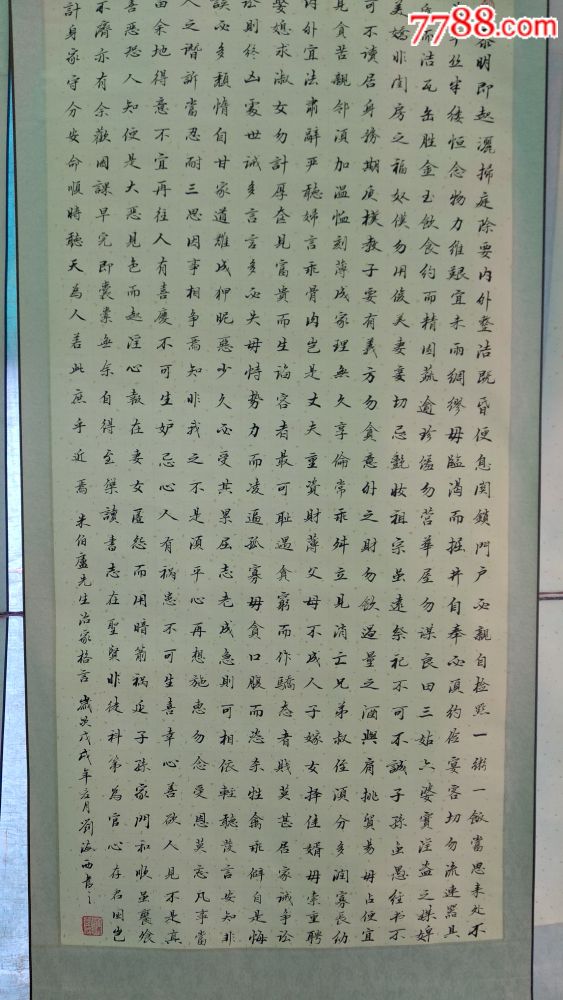 7788.com
黎明即起灑掃庭除要內外整潔既昏便息関鎖門户必親自检點一粥一飯當思来處不
半丝半縷恒念物力維艱宜未雨綢繆毋臨渴而掘井自奉必須約俭宴客切勿流連器具
而洁瓦缶胜金玉飲食約而精园蔬逾珍饈勿营華屋勿謀良田三姑六婆實淫盗之媒婢
美嬌非閨房之福奴僕勿用俊美妻妾切忌艷妝祖宗虽遠祭祀不可不誠子孫虽愚经书不
可不讀居身務期质樸教子要有義方勿貪意外之財勿飲過量之酒與肩挑貿易毋占便宜
見貪苦親鄰須加溫恤刻薄成家理無久享倫常乖舛立見消亡兄弟叔侄須分多潤寡長幼
內外宜法肅辭严聽婦言乖骨肉岂是丈夫重資財薄父母不成人子嫁女擇佳婿毋索重聘
娶媳求淑女勿計厚奁見富貴而生諂容者最可耻遇貧窮而作驕态者賤莫甚居家誡争訟
訟則終凶處世誡多言言多必失毋恃勢力而凌逼孤寡毋貪口腹而恣杀牲禽乖僻自是悔
誤必多頹惰自甘家道難成狎昵惡少久必受其累屈志老成急則可相依輕聽發言安知非
人之譖訴當忍耐三思因事相争焉知非我之不是須平心再想施惠勿念受恩莫忘凡事當
留余地得意不宜再往人有喜慶不可生妒忌心人有祸患不可生喜幸心善欲人見不是真
善惡恐人知便是大惡見色而起淫心報在妻女匿怨而用暗箭祸延子孫家門和順虽饔飧
不濟亦有余歡國課早完即囊橐無余自得至樂讀書志在聖賢非徒科第為官心存君國岂
計身家守分安命順時聽天為人若此庶乎近焉 朱伯廬先生治家格言 歲次戊戌年月劉海西書之